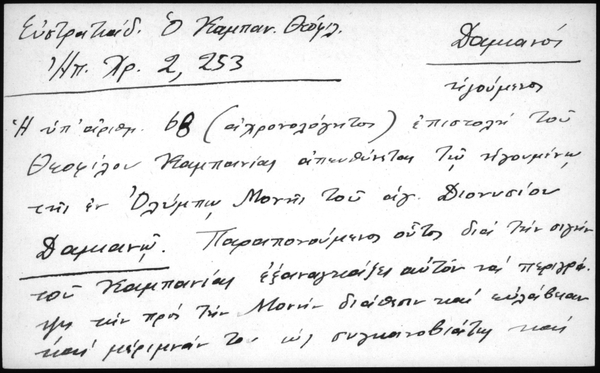 Εὐστρατιάδ. Ὁ Καμπαν. Θεόφιλ.
Ἠπ. Χρ. 2, 253
Δαμιανός
ἡγούμενος
Ἡ ὑπ' ἀριθμ. 68 (ἀχρονολόγητος) ἐπιστολή τοῦ
Θεοφίλου Καμπανίας ἀπευθύνεται τῷ ἡγουμένῳ
τῆς ἐν Ὀλύμπῳ Μονῆς τοῦ ἁγ. Διονυσίου
Δαμιανῷ. Παραπονούμενος οὗτος διά τήν σιγήν
τοῦ Καμπανίας ἐξαναγκάζει αὐτόν νά περιγρά-
ψῃ τήν πρός τήν Μονήν διάθεσιν καί εὐλάβειαν
καί μέριμναν του ὡς συγκοινοβιάτης καί